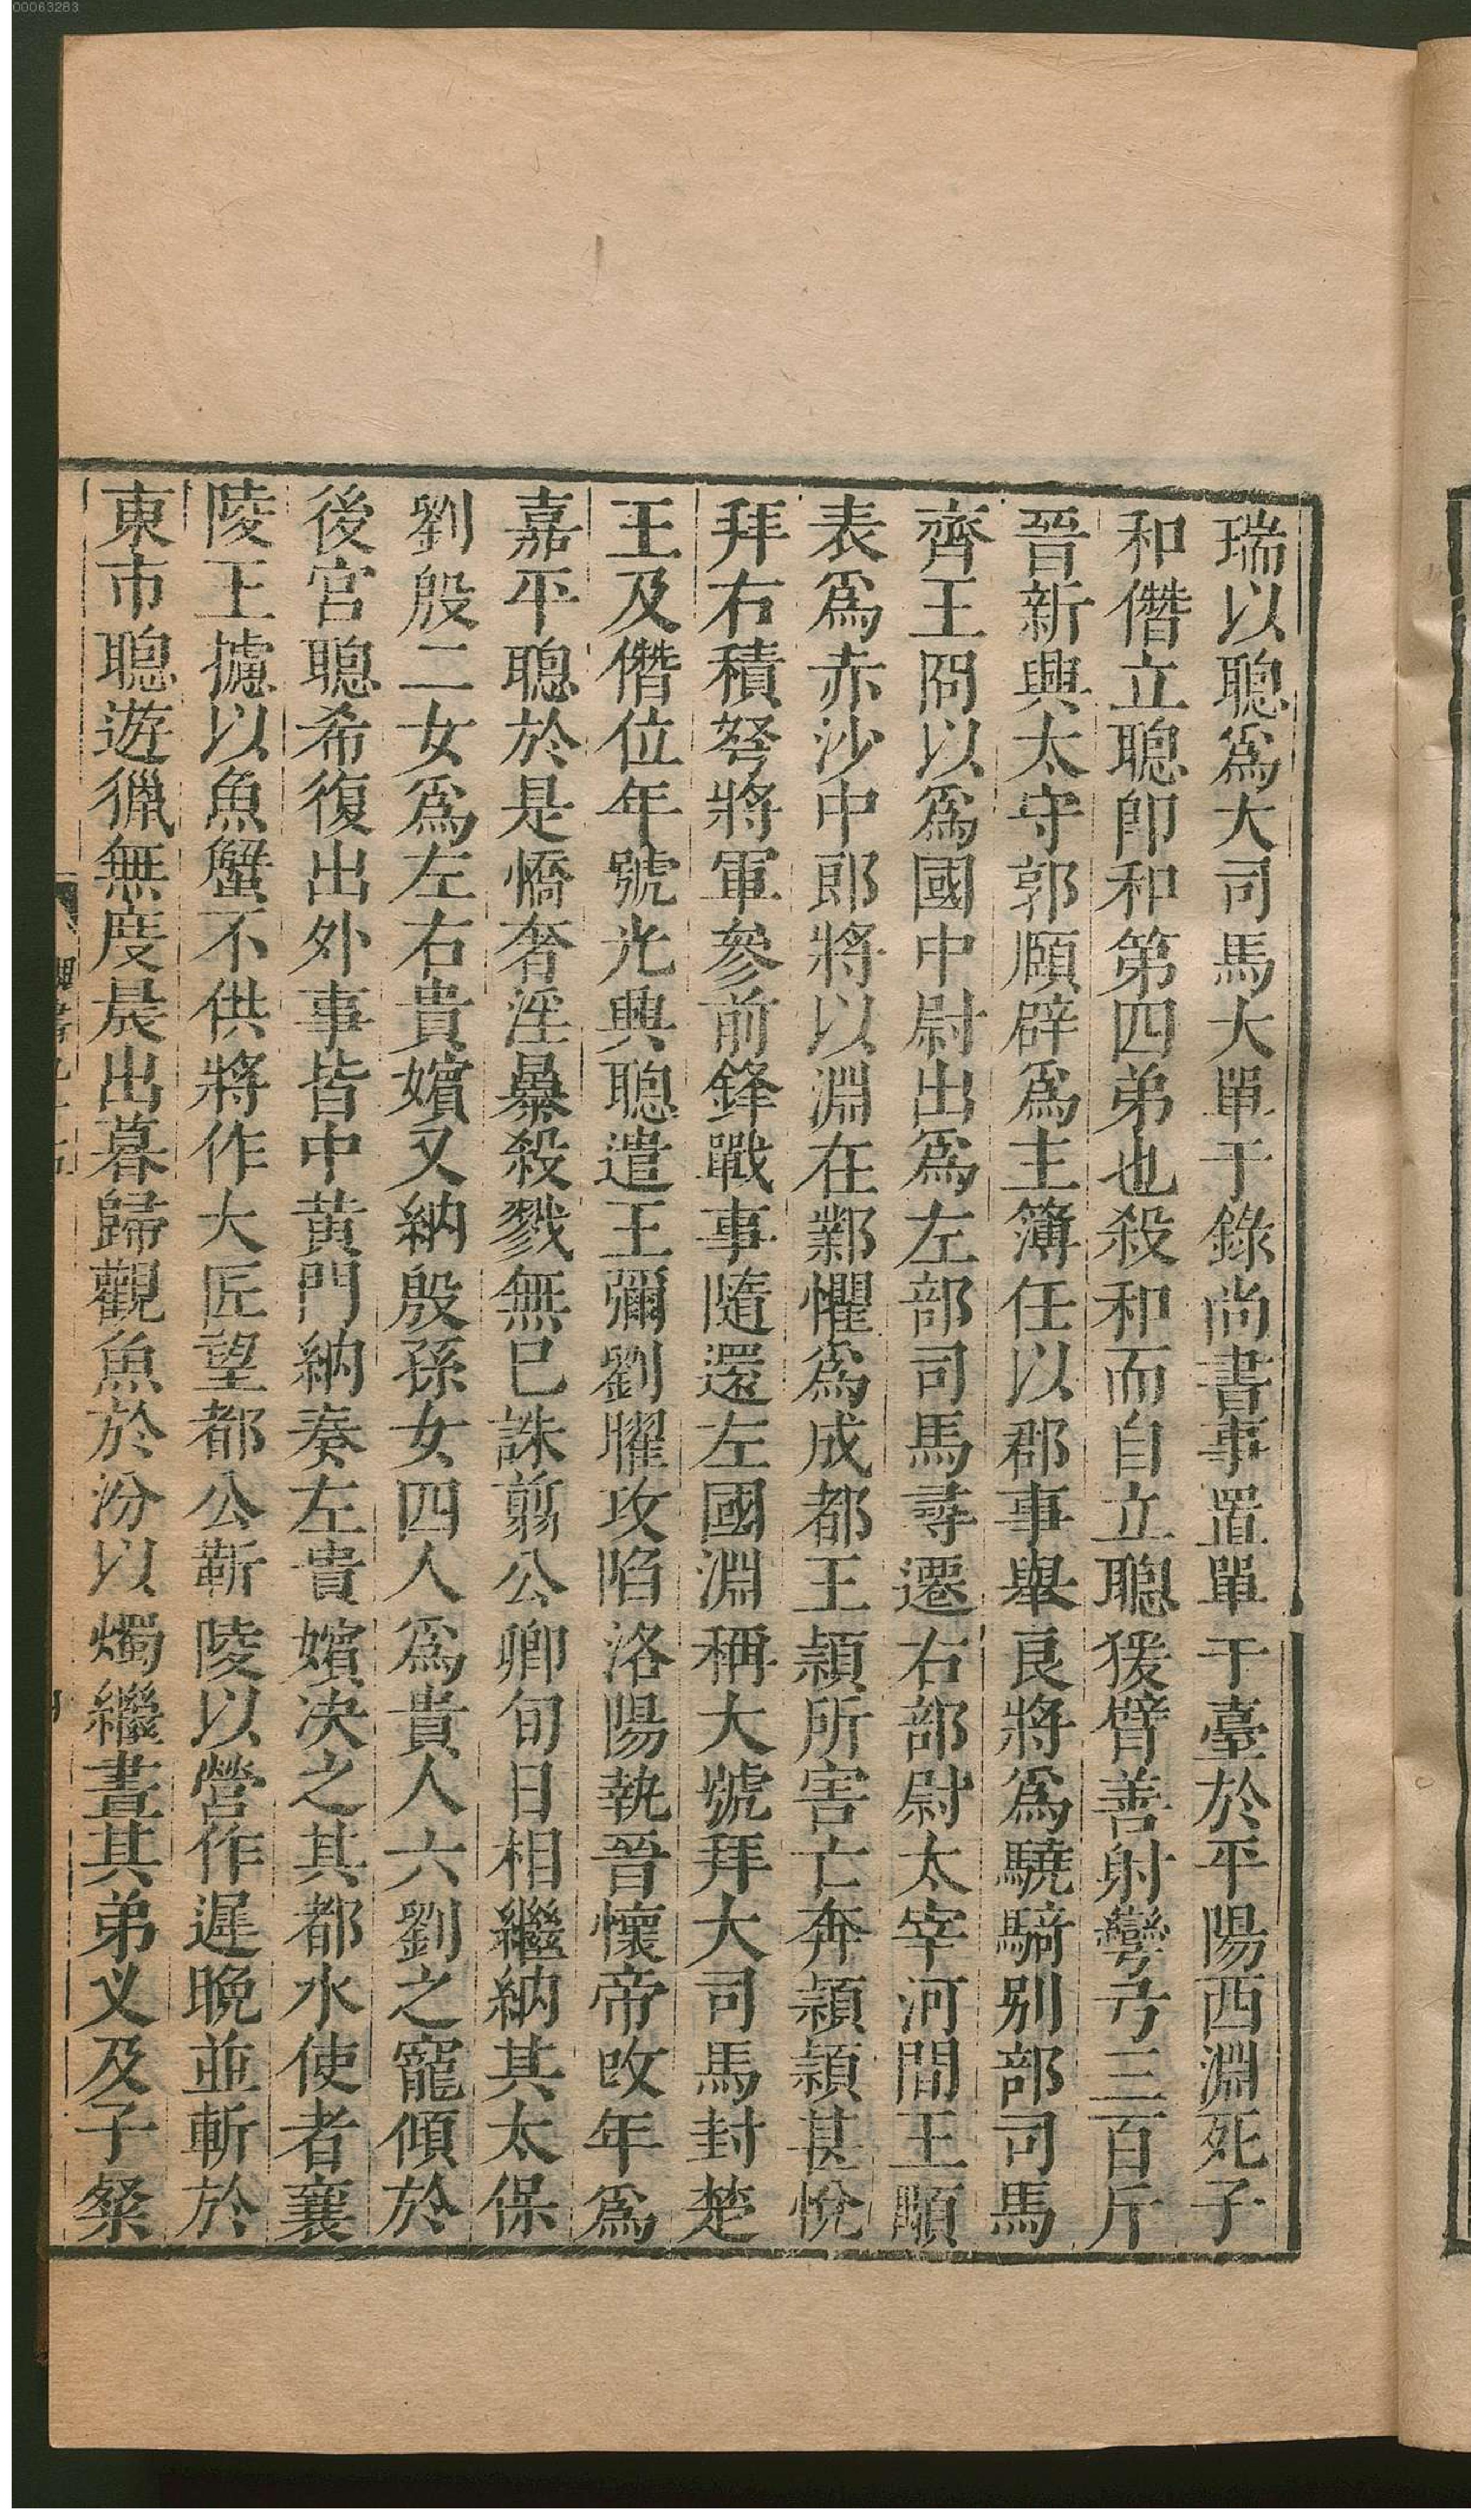 00063283
瑞以聰爲大司馬大單于錄尚書事置單于臺於平陽西淵死子
和僭立聰卽和第四弟也殺和而自立聰猨臂善射彎弓三百斤
晉新興太守郭頤辟爲主簿任以郡事舉良將爲驍騎別部司馬
齊王冏以爲國中尉出爲左部司馬尋遷右部尉太宰河間王顒
表爲赤沙中郎將以淵在鄴懼爲成都王頴所害亡奔頴頴甚悅
拜右積弩將軍參前鋒戰事隨還左國淵稱大號拜大司馬封楚
王及僭位年號光興聰遣王彌劉曜攻陷洛陽執晉懷帝改年爲
嘉平聰於是憍奢淫暴殺戮無已誅翦公卿旬日相繼納其太保
劉殷二女爲左右貴嬪又納殷孫女四人爲貴人六劉之寵傾於
後宮聰希復出外事皆中黃門納奏左貴嬪決之其都水使者襄
陵王攄以魚蟹不供將作大匠望都公靳陵以營作遲晚並斬於
東市聰遊獵無度晨出暮歸觀魚於汾以燭繼晝其弟乂及子粲